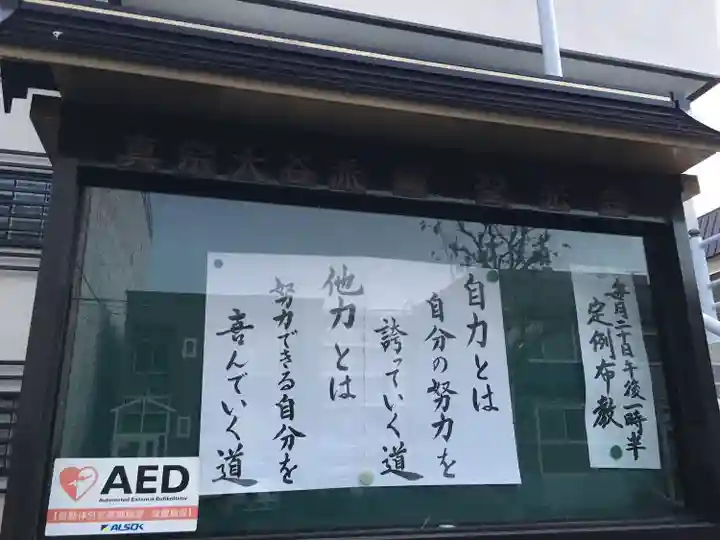 真宗大谷派
毎月二十日午後一時半
定例布教
自力とは
自分の努力を
誇っていく道
他力とは
努力できる自分を
喜んでいく道
AED
Automated External Defibrillator
ALSOK